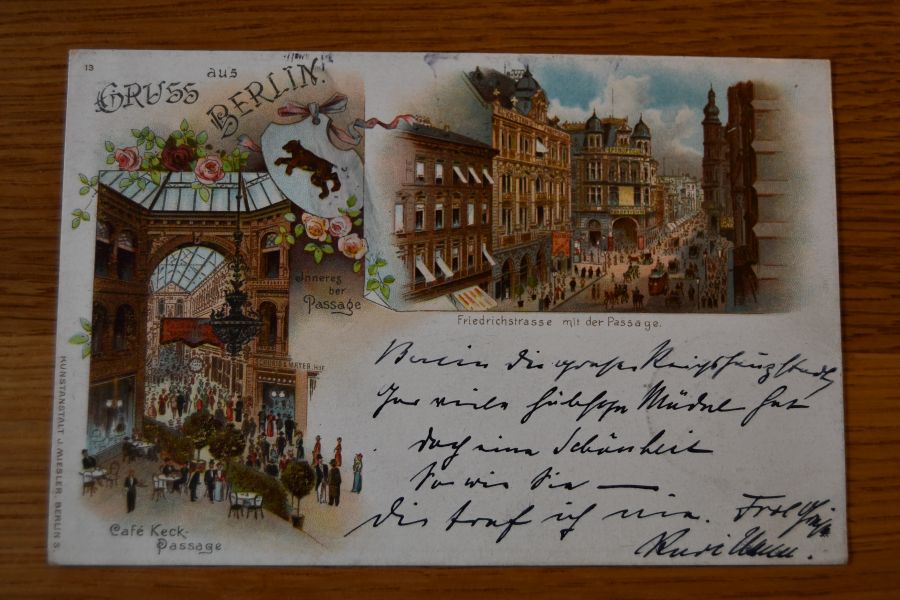 13
GRUSS aus
BERLIN!
Inneres
der
Passage
MAYER. HOF
Friedrichstrasse mit der Passage.
Café Keck-
Passage
KUNSTANSTALT J. MIESLER, BERLIN S.
Berlin die große Reichshauptstadt,
Gar viele hübsche Mädel hat
doch eine Schönheit
So wie Sie —
die traf ich nie.
Rudi